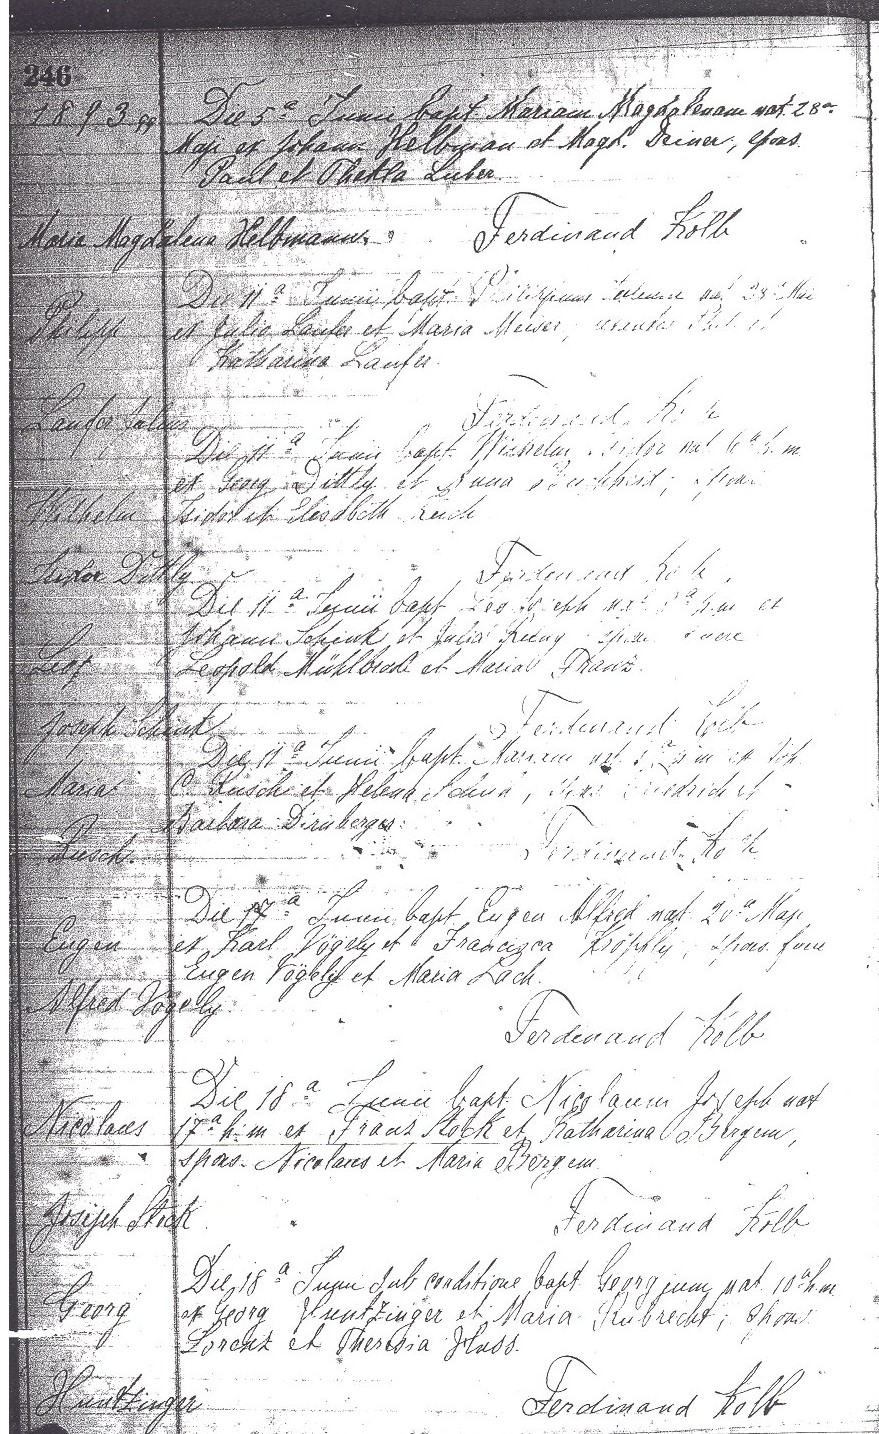 246
1893
Die 5ª Junii bapt Mariam Magdalenam nat. 28ª
Maji ex Johann Helbman et Magd. Deiner, spons.
Paul et Thekla Luber
Maria Magdalena Helbmann
Ferdinand Kolb
Die 11ª Junii bapt Philippum nat 28ª Mai
Philipp
ex Julio Laufer et Maria Meiser,
Katharina Laufer.
Laufer Julius
Ferdinand Kolb
Die 11ª Junii bapt. Wilhelm Isidor nat 6ª h.m.
ex Georg Dittly et Anna spons
Wilhelm
Isidor et Elisabeth
Isidor Dittly
Ferdinand Kolb
Die 11ª Junii bapt Leo Joseph nat h.m ex
Johann Schenk et Julia spons
Leo
Leopold et Maria Franz.
Joseph Schenk
Ferdinand Kolb
Die 11ª Junii bapt. Mariam nat h.m ex Joh
Maria
C. Rusch et Helena, spons Friedrich et
Barbara Dirnberger.
Rusch.
Ferdinand Kolb
Die 17ª Junii bapt Eugen Alfred nat 20ª Maji
Eugen
ex Karl Vögely et Francisca Kröpfly, spons. fuere
Eugen Vögely et Maria Lach.
Alfred Vögely.
Ferdinand Kolb
Die 18ª Junii bapt Nicolaum Joseph nat
Nicolaus
17ª h.m ex Franz Stock et Katharina Bergem,
spons. Nicolaus et Maria Bergem
Joseph Stock
Ferdinand Kolb
Die 18ª Junii sub conditione bapt Georgium nat 10ª h.m
Georg
ex Georg Huntzinger et Maria Rubrecht, spons.
Lorenz et Theresia Huss.
Huntzinger
Ferdinand Kolb